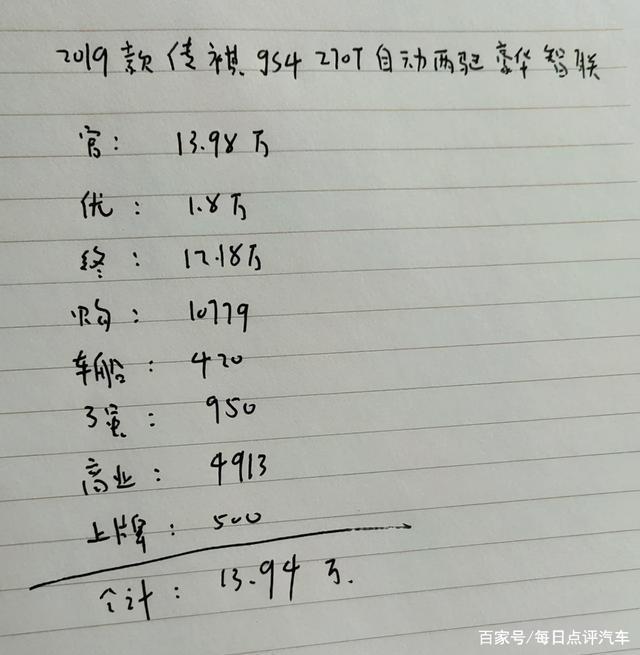 2019款传祺GS4 270T自动两驱豪华智联
官: 13.98万
优: 1.8万
终: 12.18万
购: 10779
车船: 420
3强: 950
商业: 4913
上牌: 500
合计: 13.94万.
百家号/每日点评汽车